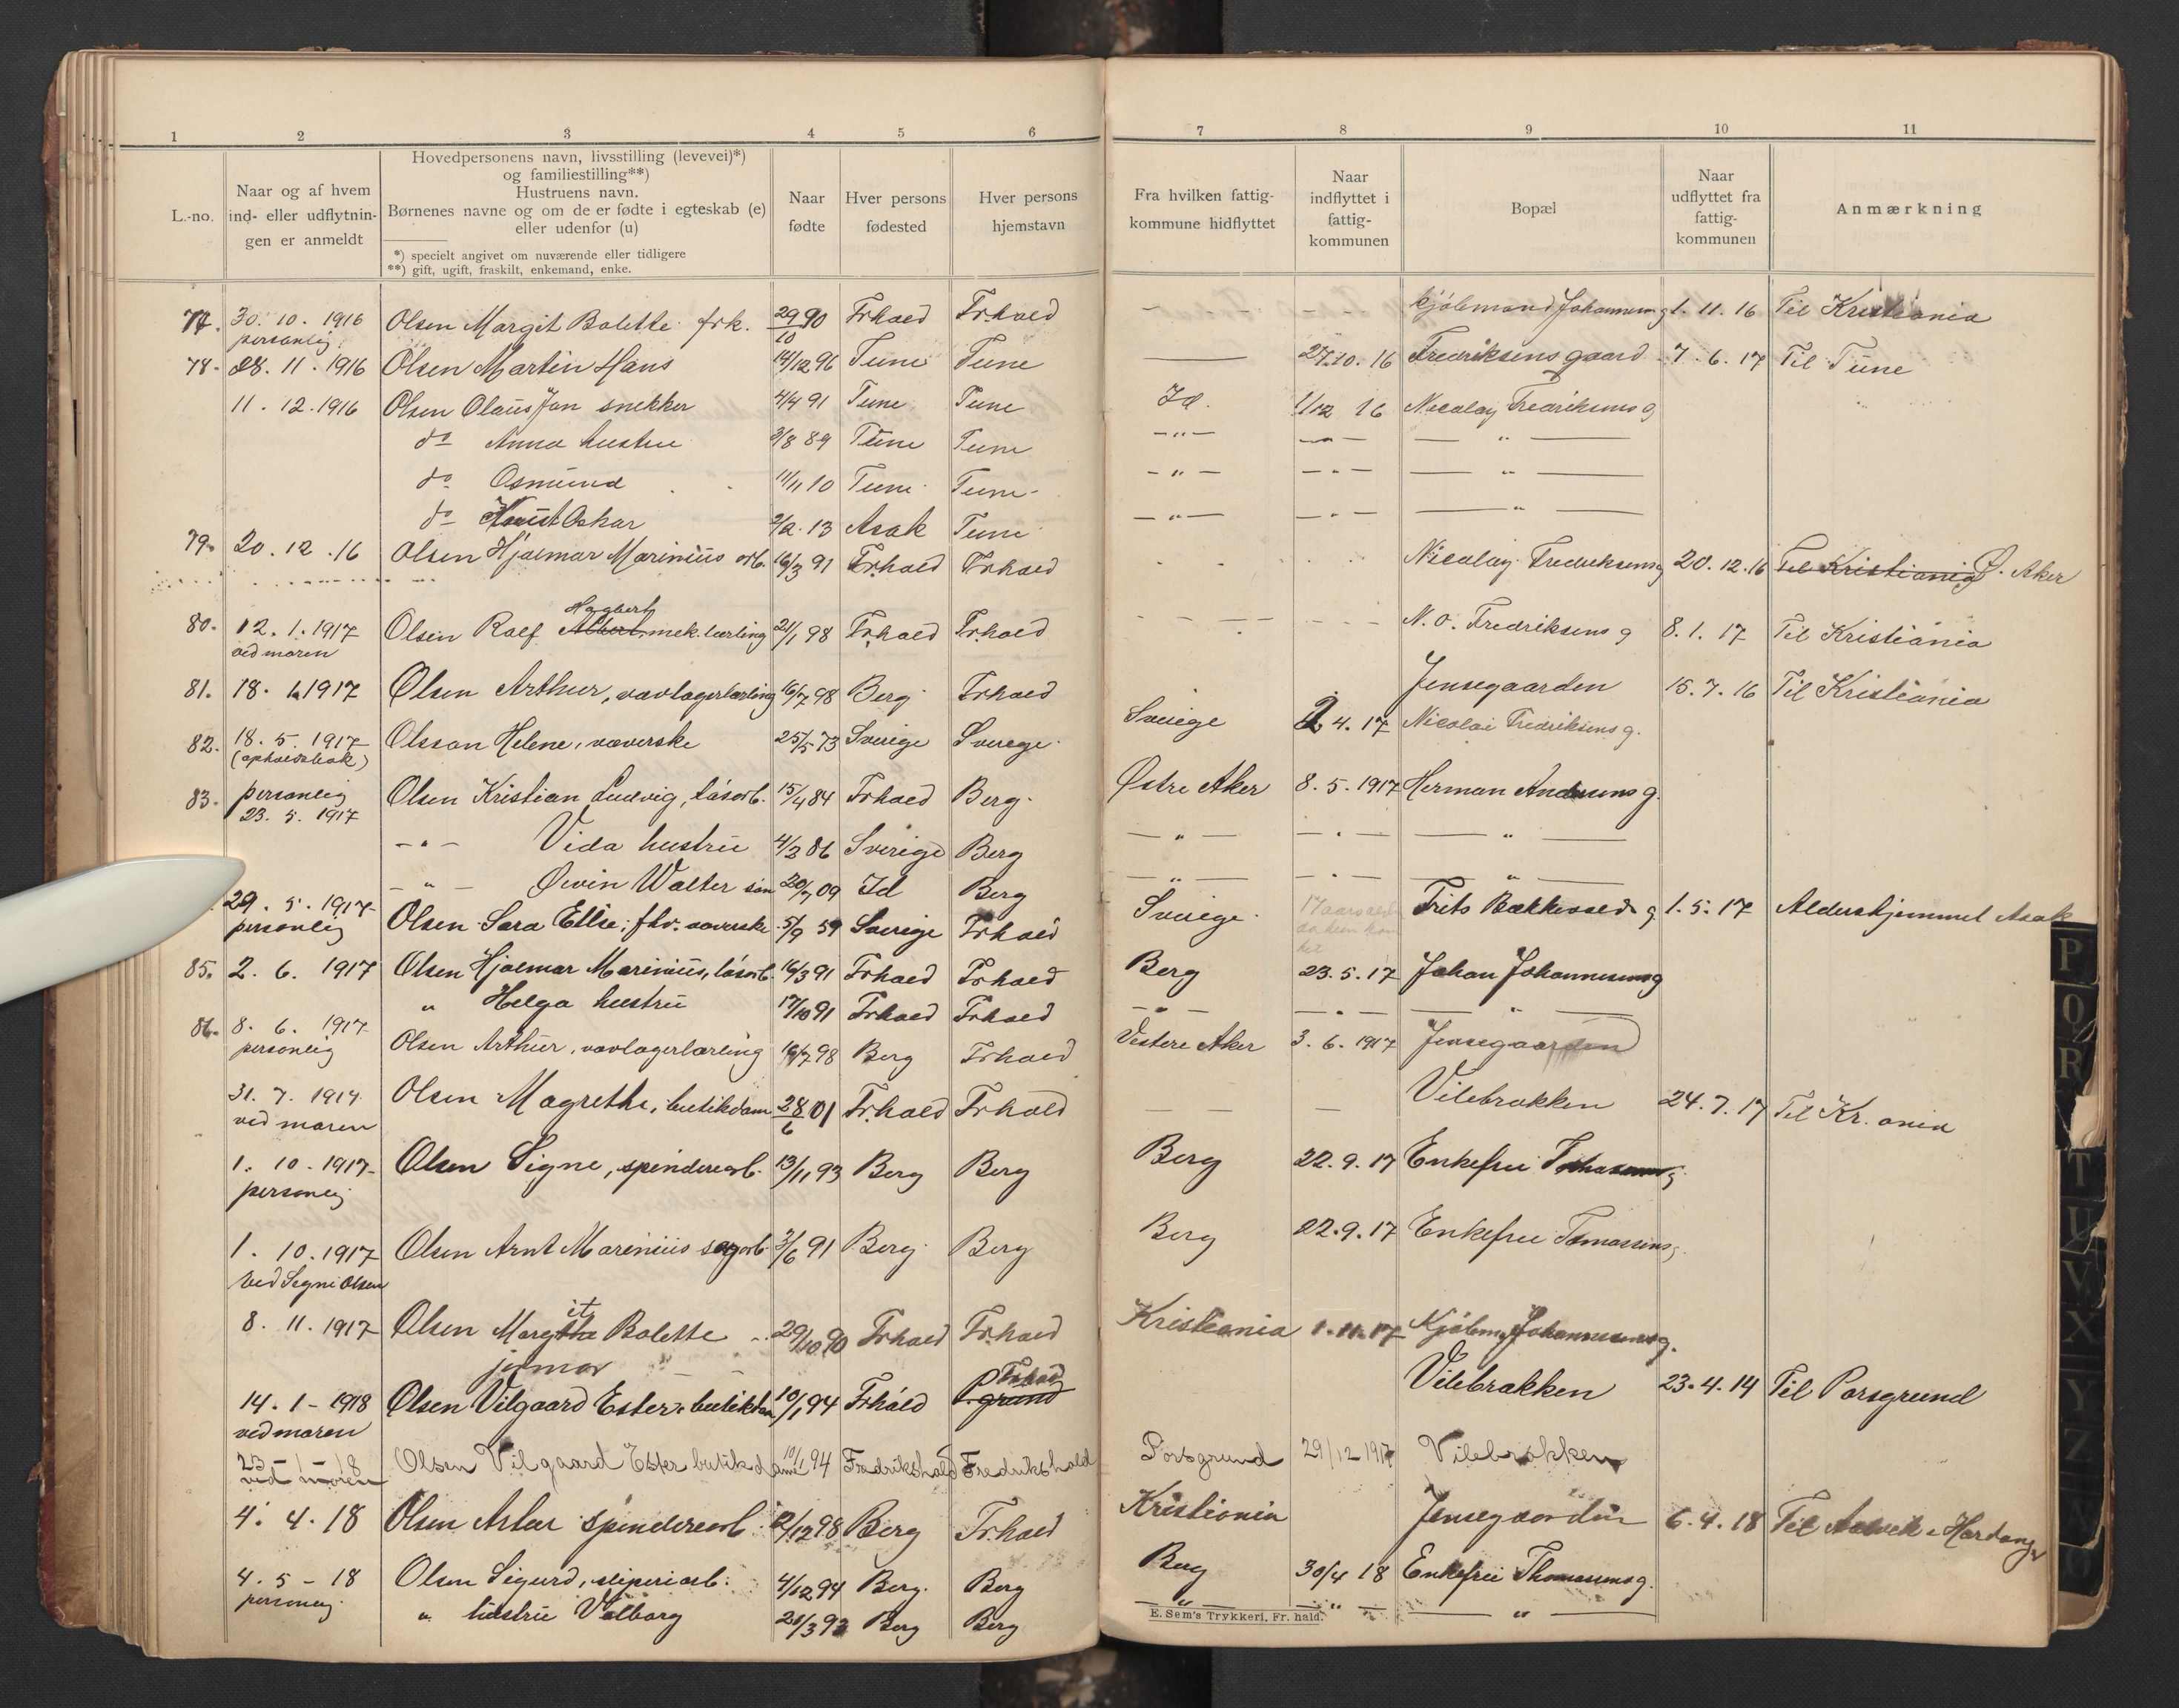 1 2 3 4 5 6 7 8 9 10 11
L.-no.
Naar og af hvem
ind- eller udflytnin-
gen er anmeldt
Hovedpersonens navn, livsstilling (levevei)*)
og familiestilling**)
Hustruens navn.
Børnenes navne og om de er fødte i egteskab (e)
eller udenfor (u)
*) specielt angivet om nuværende eller tidligere
**) gift, ugift, fraskilt, enkemand, enke.
Naar
fødte
Hver persons
fødested
Hver persons
hjemstavn
Fra hvilken fattig-
kommune hidflyttet
Naar
indflyttet i
fattig-
kommunen
Bopæl
Naar
udflyttet fra
fattig-
kommunen
Anmærkning
77. 30. 10. 1916 Olsen Margit Bolette frk. 29/10 90 Frhald Frhald - - - kjøbmand Johannesens g 1. 11. 16 Til Kristiania
personlig
78. 28. 11. 1916 Olsen Martin Hans 14/12 96 Tune Tune — 27.10. 16 Fredriksens gaard 7. 6. 17 Til Tune
11. 12. 1916 Olsen Olaus Jan snekker 4/4 91 Tune Tune Id. 1/12 16 Nicolay Fredriksens g
do Anna hustru 3/8 89 Tune Tune — " — — " — — " —
do Osmund 11/11 10 Tune Tune — " — — " — — " —
do Oskar 2/2. 13 Asak Tune — " — — " — — " —
79. 20. 12. 16 Olsen Hjalmar Marinius arb. 16/3 91 Frhald Frhald Nicolay Fredriksens g 20. 12. 16 Til Kristiania Ø. Aker
80. 12. 1. 1917 Olsen Rolf Albert Hagbert mek. lærling 21/1 98 Frhald Frhald N. O. Fredriksens g 8. 1. 17 Til Kristiania
ved moren
81. 18. 1. 1917 Olsen Arthur, vævlagerlærling 16/7 98 Berg Frhald Jensegaarden 15. 7. 16 Til Kristiania
82. 18. 5. 1917 Olsson Helene, væverske 25/5 73 Sverige Sverige Sverige 2. 4. 17 Nicolai Fredriksens g.
(opholdsbok)
83. personlig Olsen Kristian Ludvig, løsarb. 15/4 84 Frhald Berg Østre Aker 8. 5. 1917 Herman Andersens g.
23. 5. 1917
— " — Vida hustru 4/3 86 Sverige Berg — " — — " — — " —
— " — Øivin Walter søn 20/7 09 Id Berg — " — — " — — " —
29. 5. 1917 Olsen Sara Ellse, fhv. væverske 5/9 59 Sverige Frhald Sverige Fritz Bækkevolds g 1. 5. 17 Aldershjemmet Asak
personlig
85. 2. 6. 1917 Olsen Hjalmar Marinius, løsarb. 16/3 91 Frhald Frhald Berg 23. 5. 17 Johan Johannesens g
" Helga hustru 17/10 91 Frhald Frhald — " — — " — — " —
86. 8. 6. 1917 Olsen Arthur, vævlagerlærling 16/7 98 Berg Frhald Vestere Aker 3. 6. 1917 Jensegaarden
personlig
31. 7. 1917 Olsen Magrethe, butikdam 28/6 01 Frhald Frhald — — — Vilebrakken 24. 7. 17 Til Kr. ania
ved moren
1. 10. 1917 Olsen Signe, spinderearb. 13/11 93 Berg Berg Berg 22. 9. 17 Enkefru g
personlig
1. 10. 1917 Olsen Arnt Marinius sagarb. 3/6 91 Berg Berg Berg 22. 9. 17 Enkefru Tomassens g.
ved Signe Olsen
8. 11. 1917 Olsen Margit Bolette 29/10 90 Frhald Frhald Kristiania 1. 11. 17 Kjøbm. Johannesens g.
jormor
14. 1 - 1918 Olsen Vilgaard Ester butikdam 10/1 94 Frhald P. grund Frhald Vilebrakken 23. 4. 14 Til Porsgrund
ved moren
23 - 1 - 18 Olsen Vilgaard Ester butikdame 10/1 94 Fredrikshald Fredrikshald Porsgrund 29/12 1917 Vilebrakken
ved moren
4. 4. 18 Olsen spinderearb. 2/12 98 Berg Frhald Kristiania Jensegaarden 6. 4. 18 Til Aalvik i Hardanger
4. 5 - 18 Olsen Sigurd, sliperiarb. 4/12 94 Berg. Berg Berg 30/4 18 Enkefru Thomasens g.
personlig
" hustru Valborg 21/3 93 Berg Berg — " — — " — — " —
E. Sem's Trykkeri, Fr. hald.
P
Q
R
T
U
V
X
Y
Z
Ø